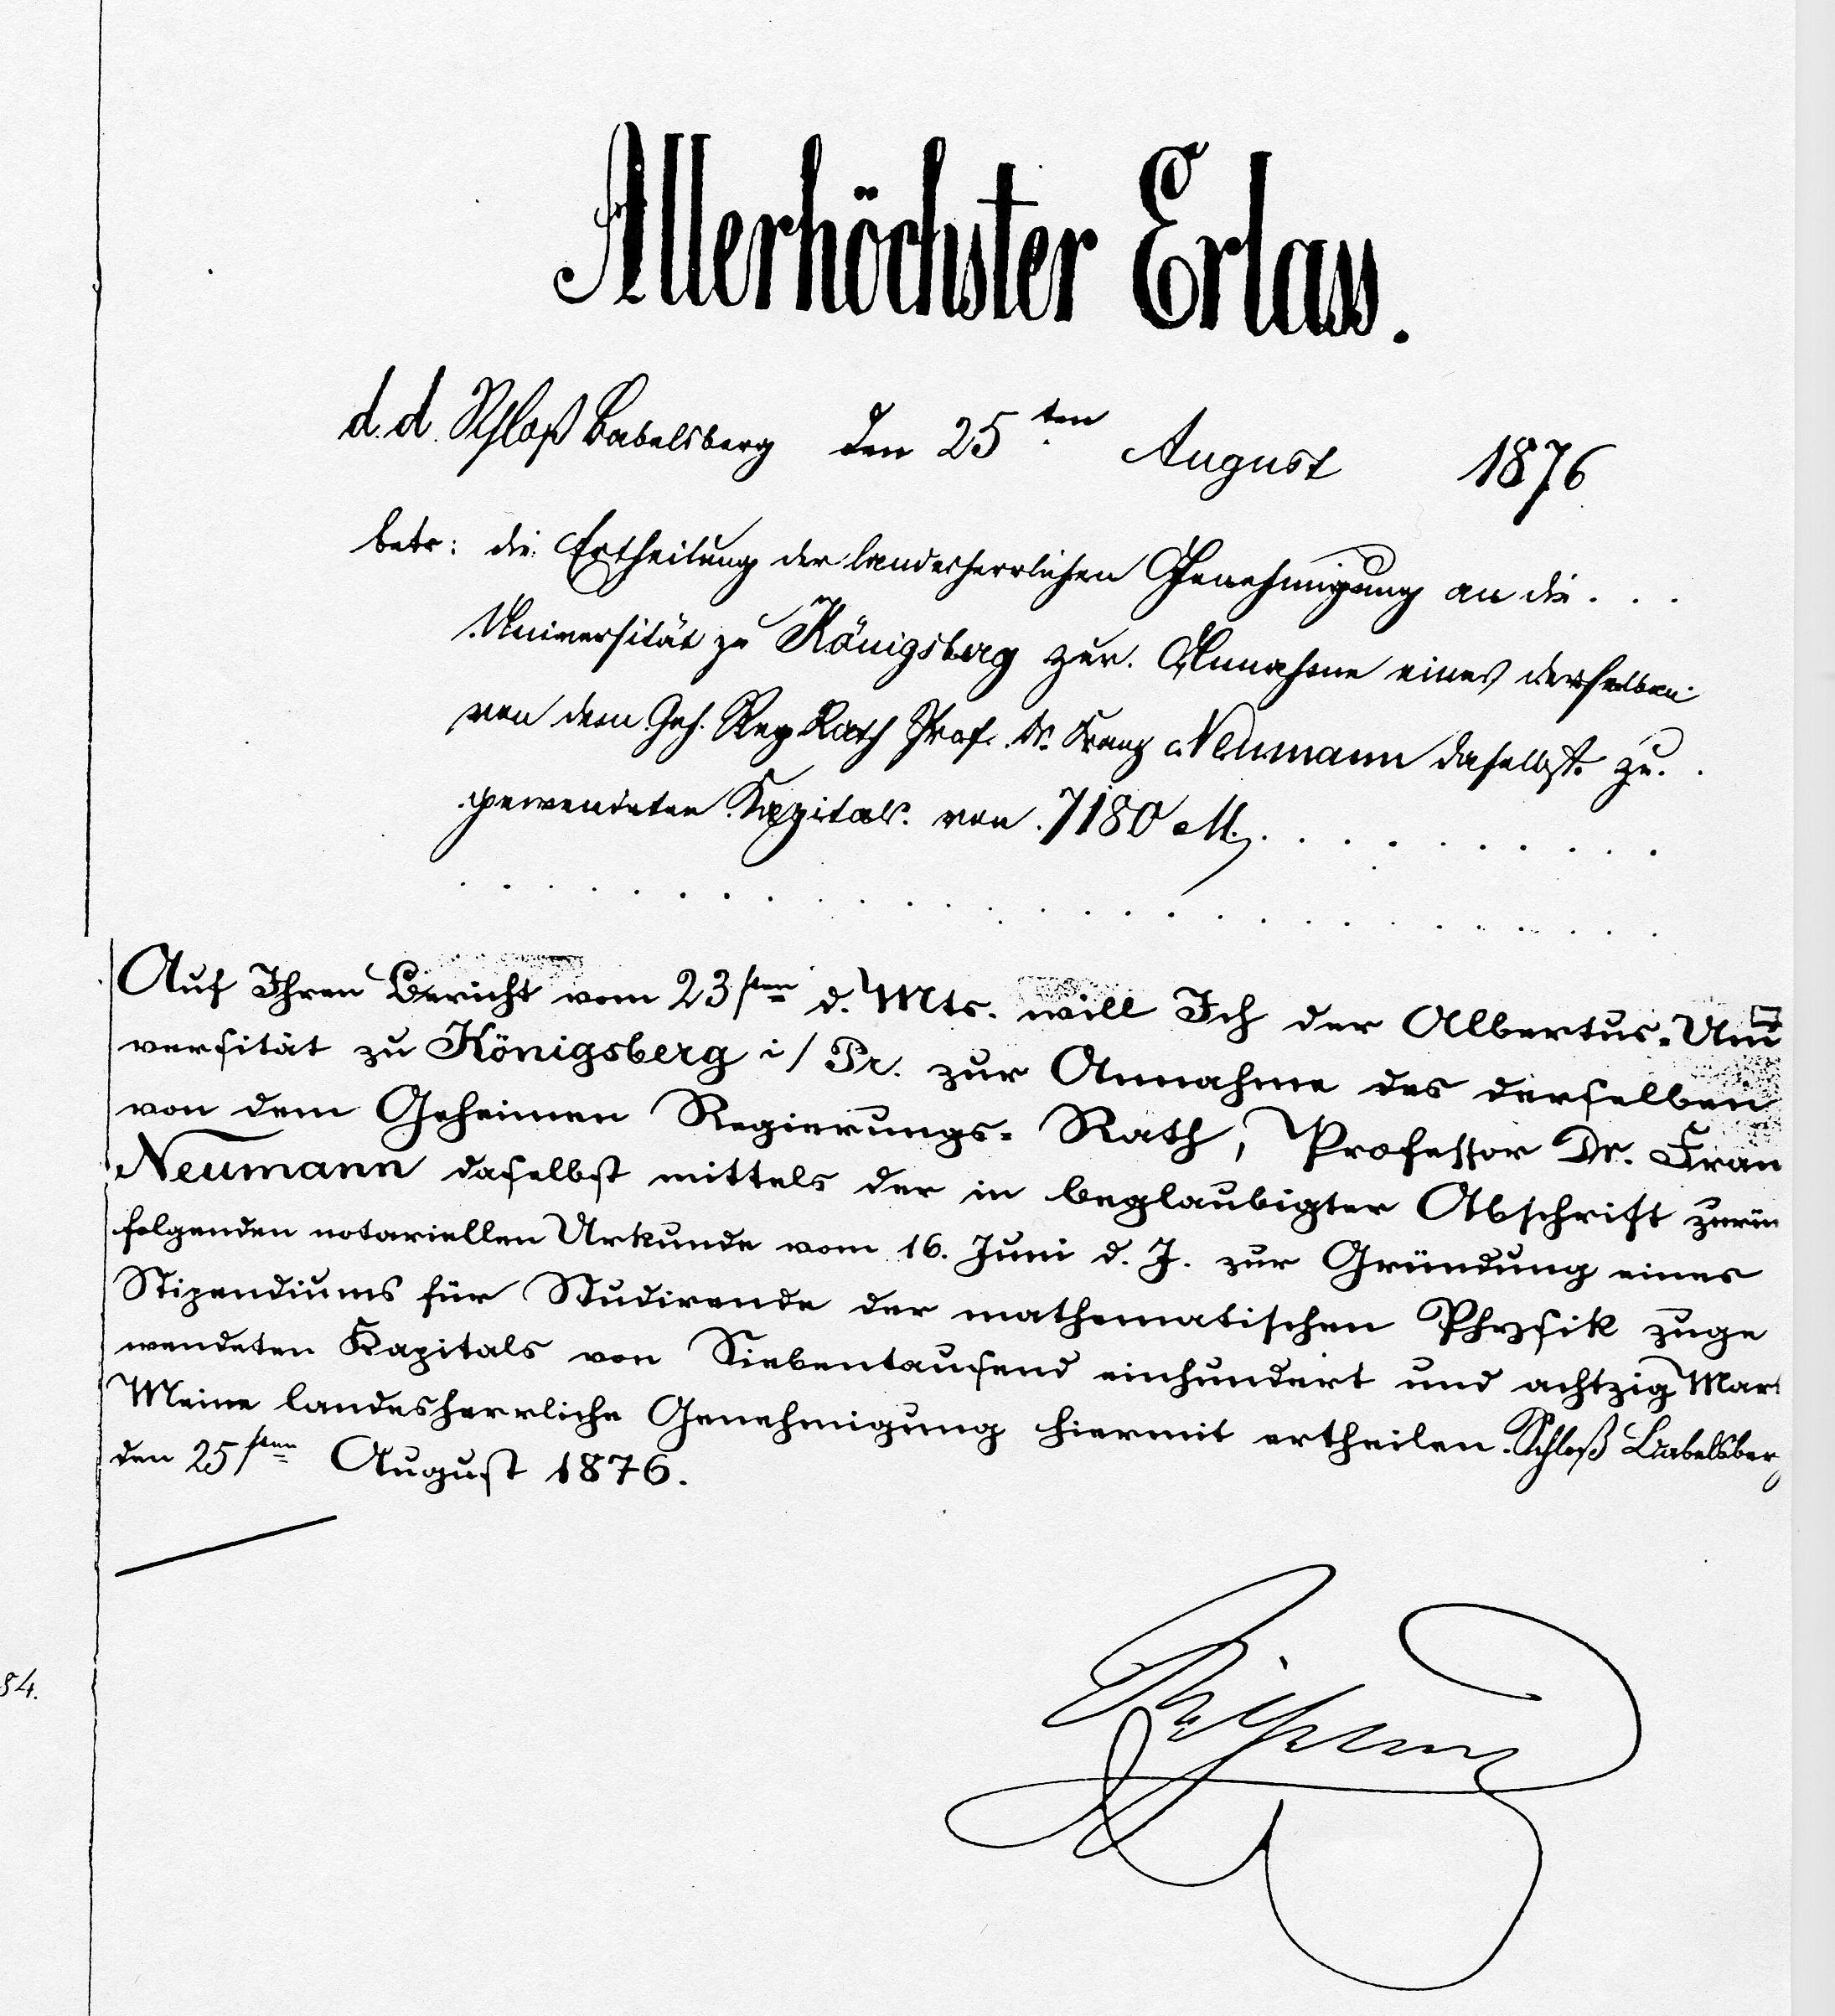 Allerhöchster Erlass.
d. d. Schloß Babelsberg den 25ten August 1876
betr: die Ertheilung der landesherrlichen Genehmigung an die . . .
Universität zu Königsberg zur Annahme eines derselben
von dem Geh. Reg Rath Prof. Dr. Franz Neumann daselbst zu. .
gewendeten Kapitals von 7180 M. . . . . . . . . . .
Auf Ihren Bericht vom 23sten d. Mts. will Ich der Albertus-Uni
versität zu Königsberg i/ Pr. zur Annahme des derselben
von dem Geheimen Regierungs-Rath, Professor Dr. Fran
Neumann daselbst mittels der in beglaubigter Abschrift zurü
folgenden notariellen Urkunde vom 16. Juni d. J. zur Gründung eines
Stipendiums für Studirende der mathematischen Physik zuge
wendeten Kapitals von Siebentausend einhundert und achtzig Mark
Meine landesherrliche Genehmigung hiermit ertheilen. Schloß Babelsberg
den 25sten August 1876.
84.
Wilhelm